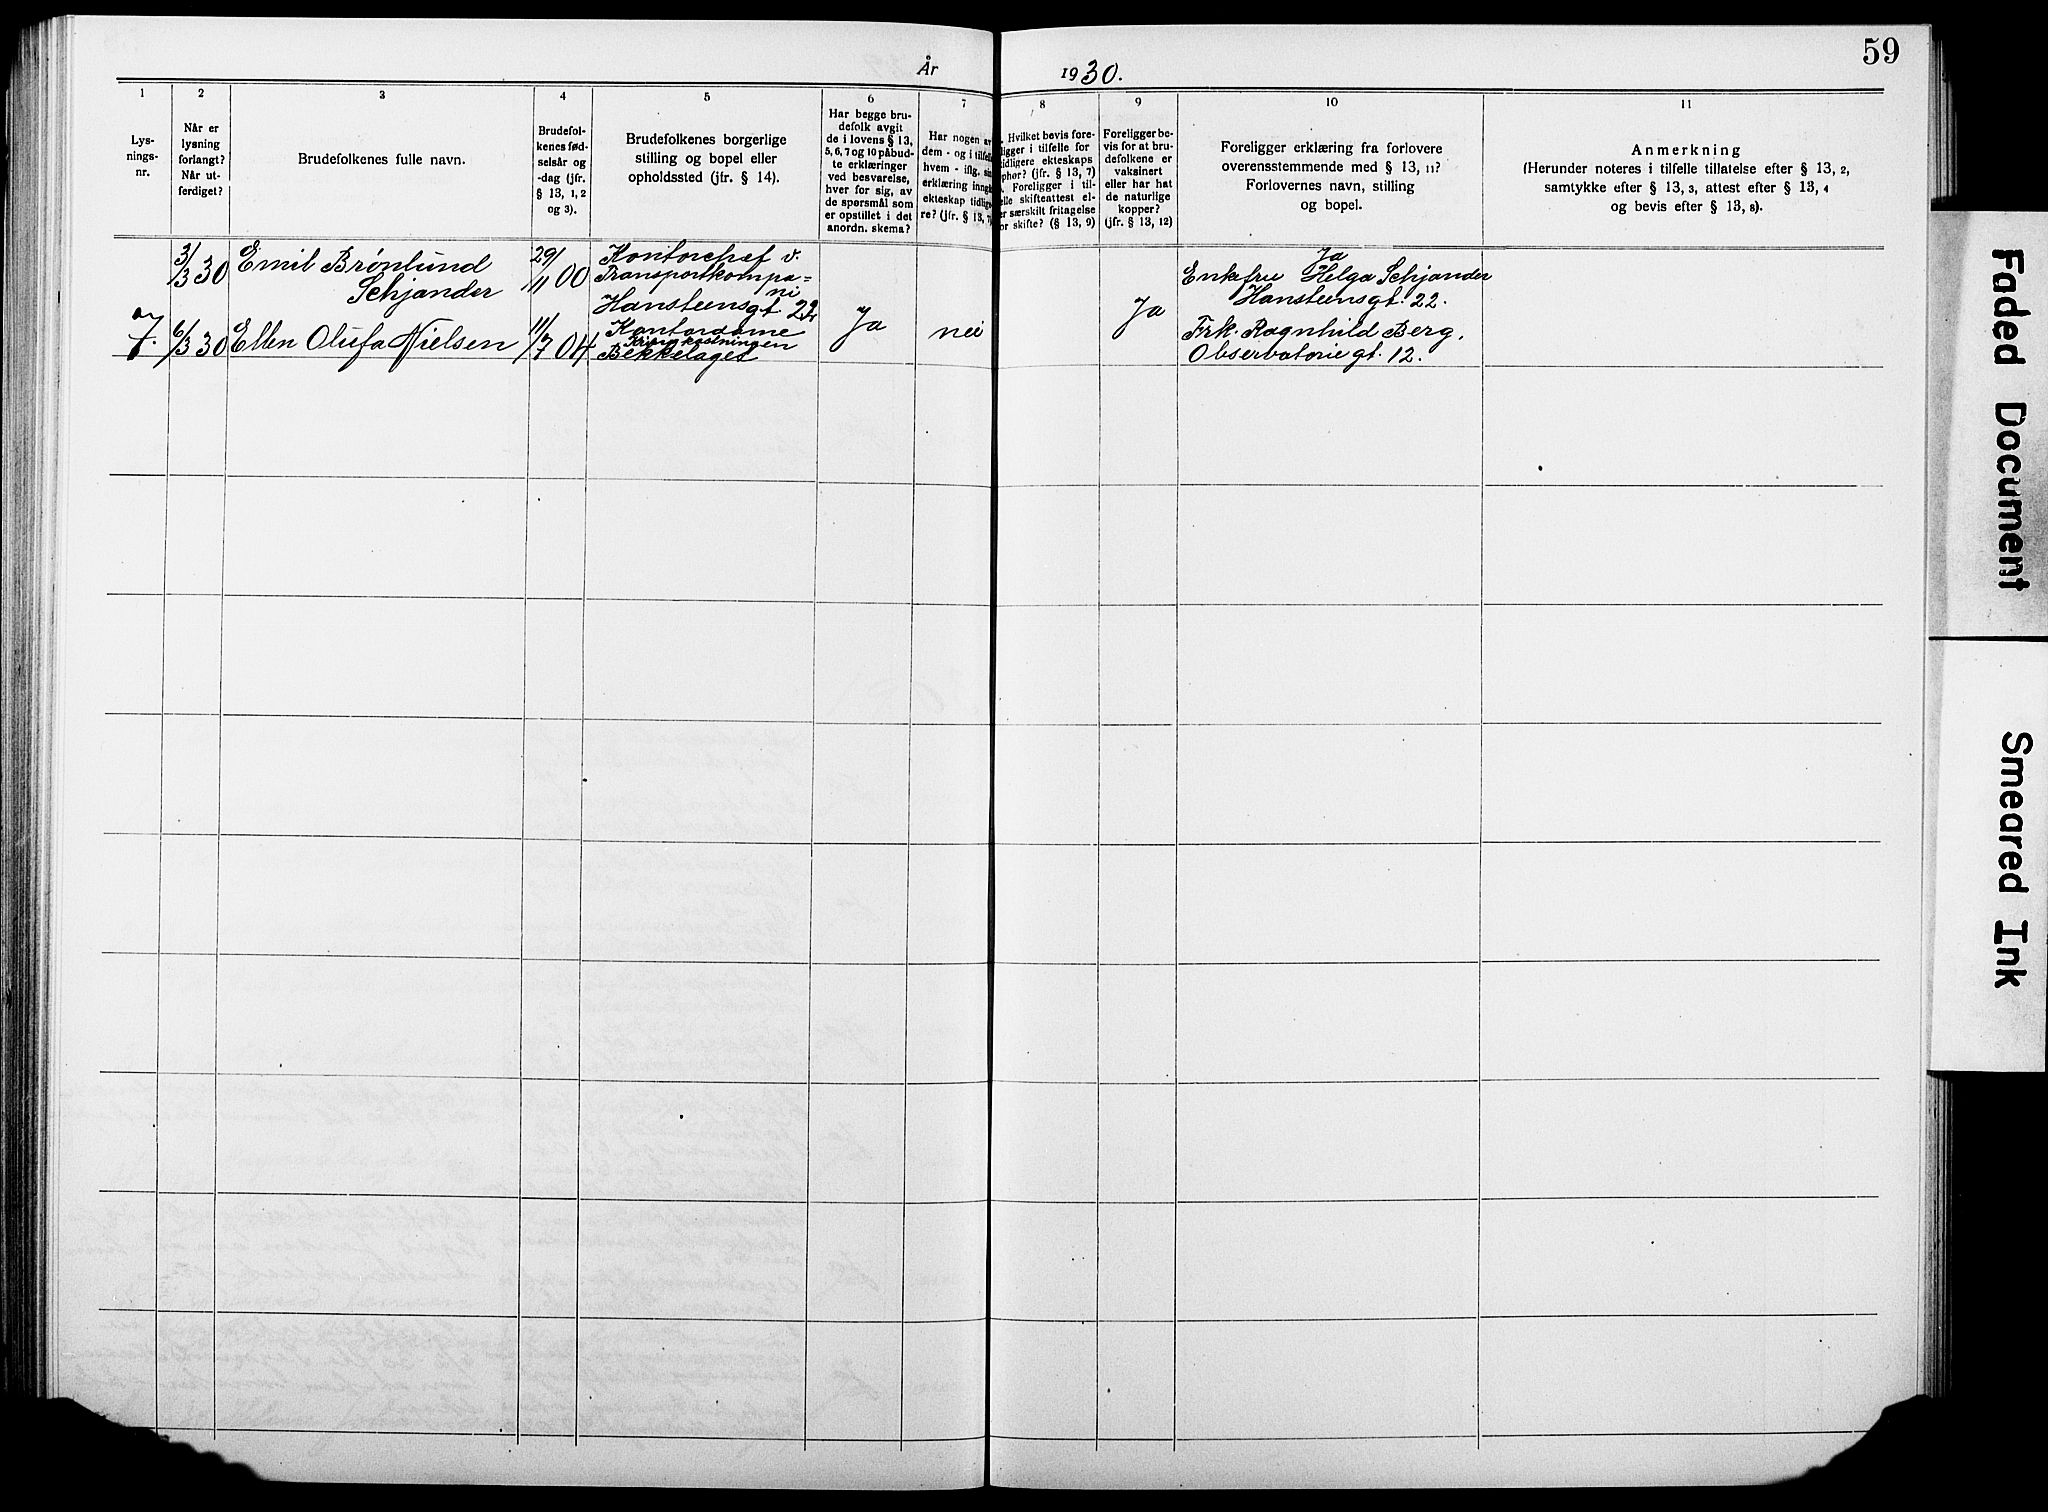 59
År 1930.
1
Lys-
nings-
nr.
2
Når er
lysning
forlangt?
Når ut-
ferdiget?
3
Brudefolkenes fulle navn.
4
Brudefol-
kenes fød-
selsår og
-dag (jfr.
§ 13, 1, 2
og 3).
5
Brudefolkenes borgerlige
stilling og bopel eller
opholdssted (jfr. § 14).
6
Har begge bru-
defolk avgit
de i lovens § 13,
5, 6, 7 og 10 påbud-
te erklæringer
ved besvarelse,
hver for sig, av
de spørsmål som
er opstillet i det
anordn. skema?
7
Har nogen av
dem - og i tilfelle
hvem - iflg. sin
erklæring inngå
ekteskap tidlige
re? (jfr. § 13, 7
8
Hvilket bevis fore-
ligger i tilfelle for
tidligere ekteskaps
ophør? (jfr. § 13, 7)
Foreligger i til-
elle skifteattest el-
er særskilt fritagelse
or skifte? (§ 13, 9)
9
Foreligger be-
vis for at bru-
defolkene er
vaksinert
eller har hat
de naturlige
kopper?
(jfr. § 13, 12)
10
Foreligger erklæring fra forlovere
overensstemmende med § 13, 11?
Forlovernes navn, stilling
og bopel.
11
Anmerkning
(Herunder noteres i tilfelle tillatelse efter § 13, 2,
samtykke efter § 13, 3, attest efter § 13, 4
og bevis efter § 13, 8).
7.
3/3 30
6/3 30
Emil Brönlund
Schjander
Ellen Olufa Nielsen
29/11 00
11/7 04
Kontorchef v.
Transportkompa=
ni
Hansteensgt. 22
Kontordame
Kringkastningen
Bekkelaget
Ja
nei
Ja
Ja
Enkefru Helga Schjander
Hansteensgt. 22.
Frk. Ragnhild Berg.
Observatoriegt. 12.
Faded Document
Smeared Ink